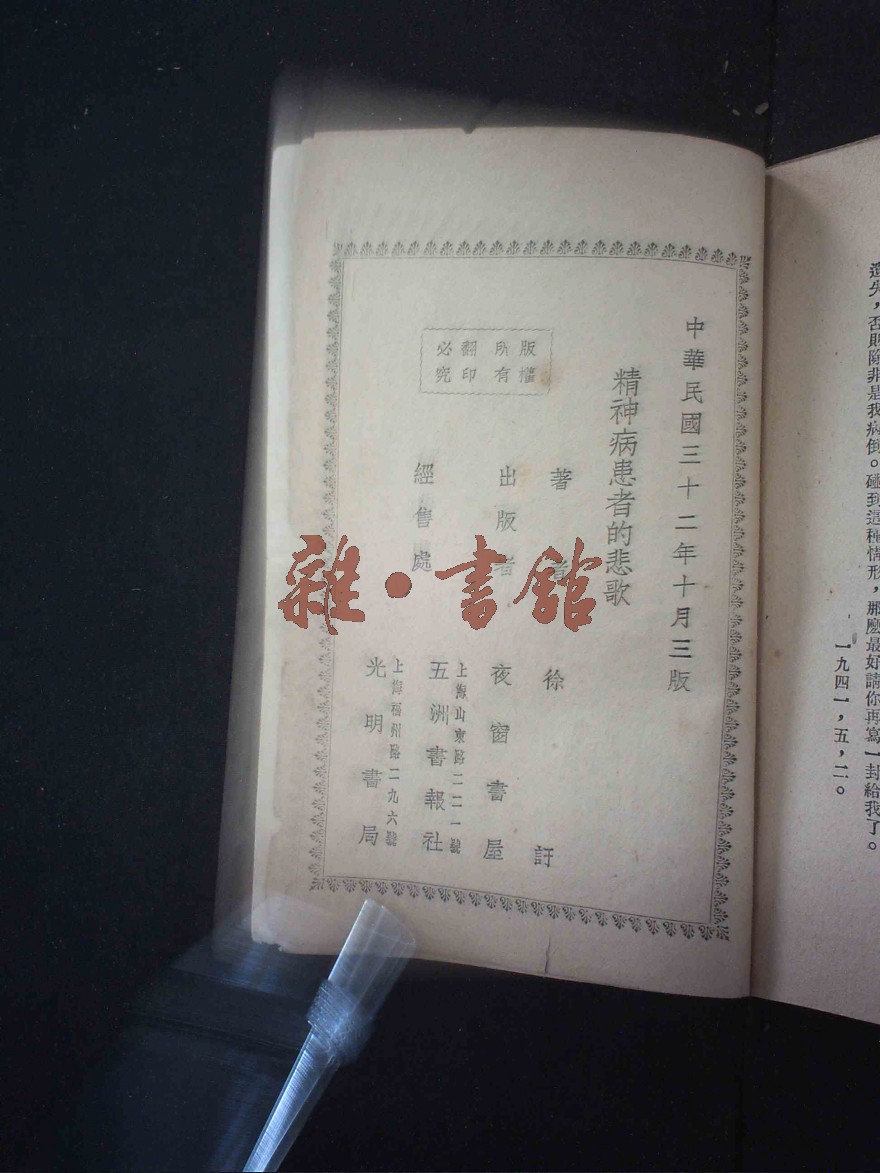 遺失，否則除非是我病倒。碰到這種情形，那麼最好請你再寫一封給我了。
一九四一，五，二。
中華民國三十二年十月三版
精神病患者的悲歌
著者 徐訏
出版者 夜窗書屋
經售處
上海山東路二二一號
五洲書報社
上海福州路二九六號
光明書局
版權所有
翻印必究
雜·書館